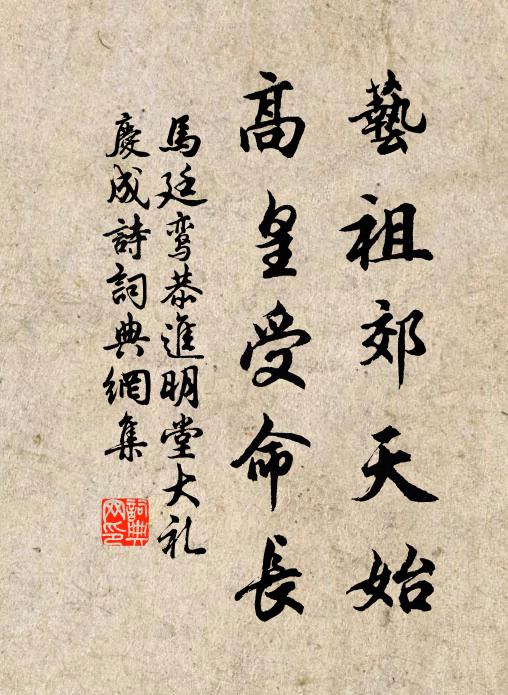 藝祖郊天始
高皇受命長
馬廷鸞恭進明堂大礼
慶成詩詞典網集
詞典网印